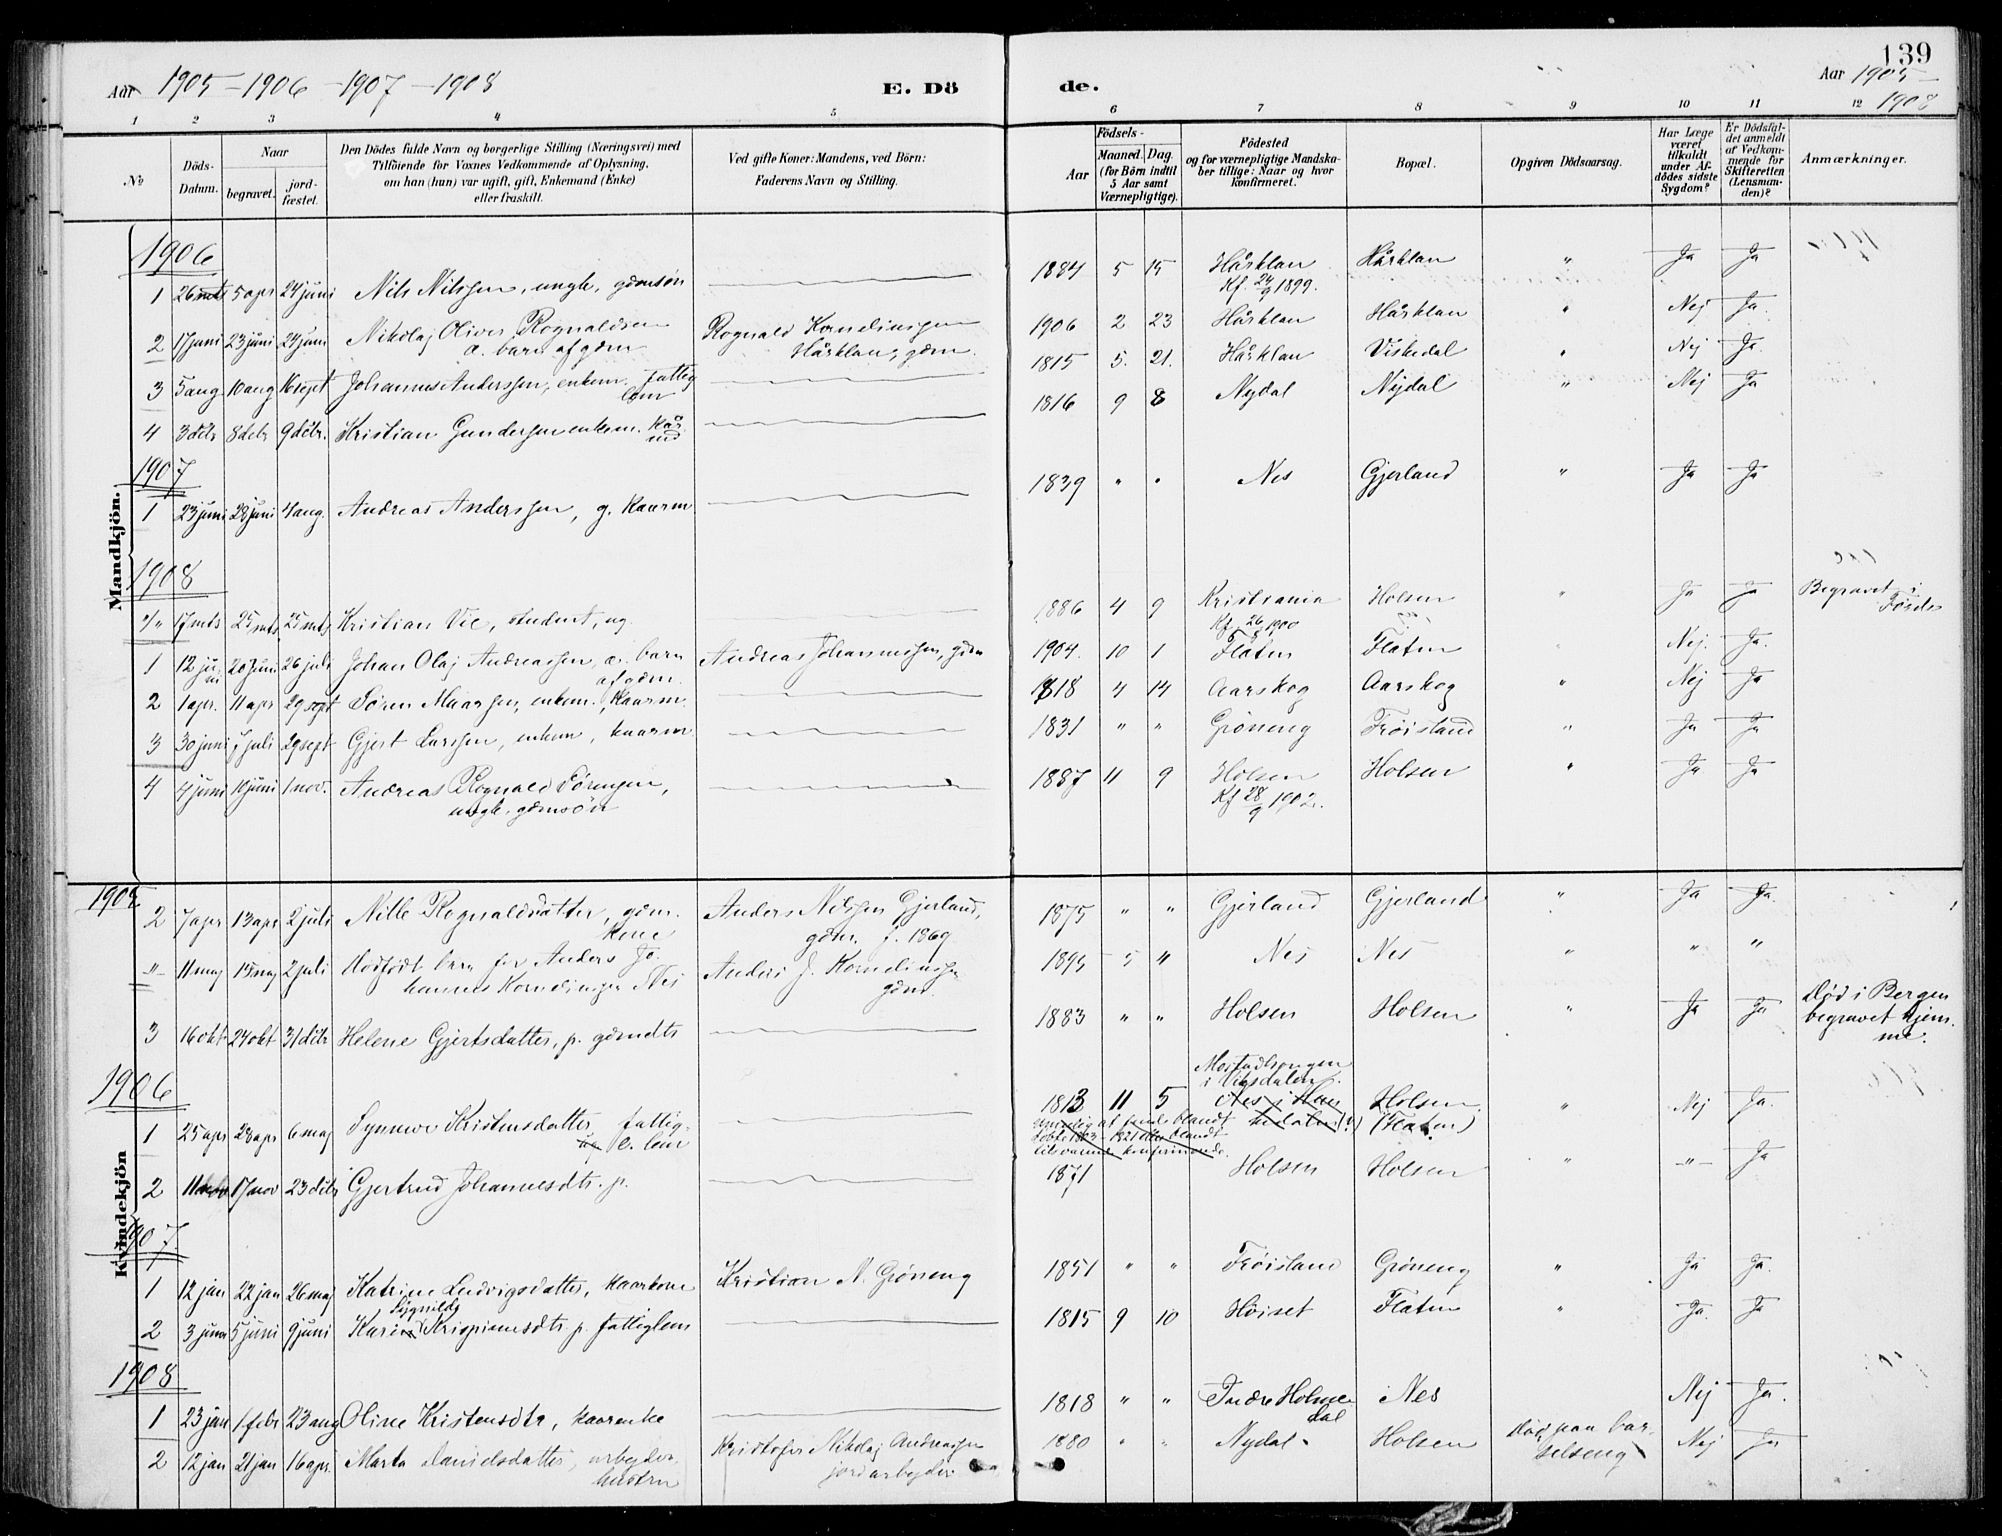 139
Aar 1905-1906-1907-1908 E. Dö de. Aar 1905-1908
1 2 3 4 5 6 7 8 9 10 11 12
No
Döds-Datum.
Naar begravet. jordfæstet.
Den Dödes fulde Navn og borgerlige Stilling (Næringsvei) med
Tilföiende for Voxnes Vedkommende af Oplysning,
om han (hun) var ugift, gift, Enkemand (Enke)
eller fraskilt.
Ved gifte Koner: Mandens, ved Börn:
Faderens Navn og Stilling.
Födsels-
Aar Maaned. Dag.
(for Börn indtil 5 Aar samt Værnepligtige).
Födested
og for værnepligtige Mandskaber tillige: Naar og hvor konfirmeret.
Bopæl.
Opgiven Dödsaarsag.
Har Læge været tilkaldt under Afdödes sidste Sygdom?
Er Dödsfaldet anmeldt af Vedkommende for Skifteretten (Lensmanden)?
Anmærkninger.
Mandkjön.
1906
1 26 mts 5 apr 24 juni Nils Nilssen, ungk, gdmsøn 1884 5 15 Hårklau Kf. 24/9 1899. Hårklau " Ja Ja
2 17 juni 23 juni 24 juni Nikolaj Oliver Rognaldsen æ. barn af gdm Rognald Kornelinssen Hårklau, gdm. 1906 2 23 Hårklau Hårklau " Nej Ja.
3 5 aug 10 aug 16 sept Johannes Anderssen, enkem. fattiglem 1815 5. 21. Hårklau Viskedal " Nej Ja.
4 3 dcbr 8 debr 9 dcbr. Kristian Gunderssen enkem. kårmd 1816 9 8 Nydal Nydal " Nej Ja
1907
1 23 juni 28 juni 4 aug. Andreas Anderssen, g. kaarm 1839 " " Nes Gjerland " Ja Ja
1908
"/" 17 mts 25 mts 25 mts Kristian Vie, student, ug 1886 4 9 Kristiania Kf. 26/ 1900 Holsen " Ja Ja Begravet i Førde
1 12 juni 20 juni 26 juli Johan Olaj Andreassen, æ. barn af gdm. Andreas Johannessen, gdm 1904. 10 1 Flaten Flaten Nej. Ja.
2 1 apr. 11 apr 29 sept Søren Maarssen, enkem., kaarm. 1818 4 14 Aarskog Aarskog " Nej Ja
3 30 juni 7 juli 29 sept Gjert Larssen, enkem, kaarm 1831 " " Grøneng Frøisland " Ja Ja
4 4 juni 10 juni 1 nov. Andreas Rognald Sørensen, ungk. gdmsøn 1887 11 9 Holsen Kf 28/9 1902. Holsen " Ja Ja
Kvindekjön
1905
2 7 apr 13 apr 2 juli Nille Rognaldsdatter, gdm. kone Anders Nilssen Gjerland, gdm. f. 1869 1875 " " Gjerland Gjerland " Ja Ja.
-"- 11 maj 15 maj 2 juli Dødfødt barn for Anders Johannes Kornelinssen Nes Anders J. Kornelinssen gdm. Nes Nes " " "
3 16 okt 24 okt 31 dcbr Helene Gjertsdatter, p. gdmdtr 1883 " " Holsen Holsen " Ja Ja Død i Bergen begravet hjemme.
1906
1 25 apr 28 apr 6 maj Synneve Kristensdatter, fattiglem 1813 11 5 i Viksdalen Holsen (Flaten) " Nej Ja.
2 11 nov 17 nov 23 dcbr Gjertrud Johannesdtr. p. 1871 Holsen Holsen " -"- Ja
1907
1 12 jan 22 jan 26 maj Katrine Ludvigsdatter, kaarkone Kristian N. Grøneng 1851 " " Frøisland Grøneng " Ja Ja.
2 3 juni 5 juni 9 juni Kari Krispinusdtr p. fattiglem 1815 9 10 Høiset Flaten " Ja. Ja
1908
1 23 jan 1 febr 23 aug Oline Kristensdtr, kaarenke 1818 " " Indre Holmedal Nes Nej Ja.
2 12 jan 21 jan 16 apr. Marta Danielsdatter, arbejderhustru Kristofer Nikolaj Andreassen jordarbejder 1880 " " Nydal Holsen Død paa barselseng Nej Ja